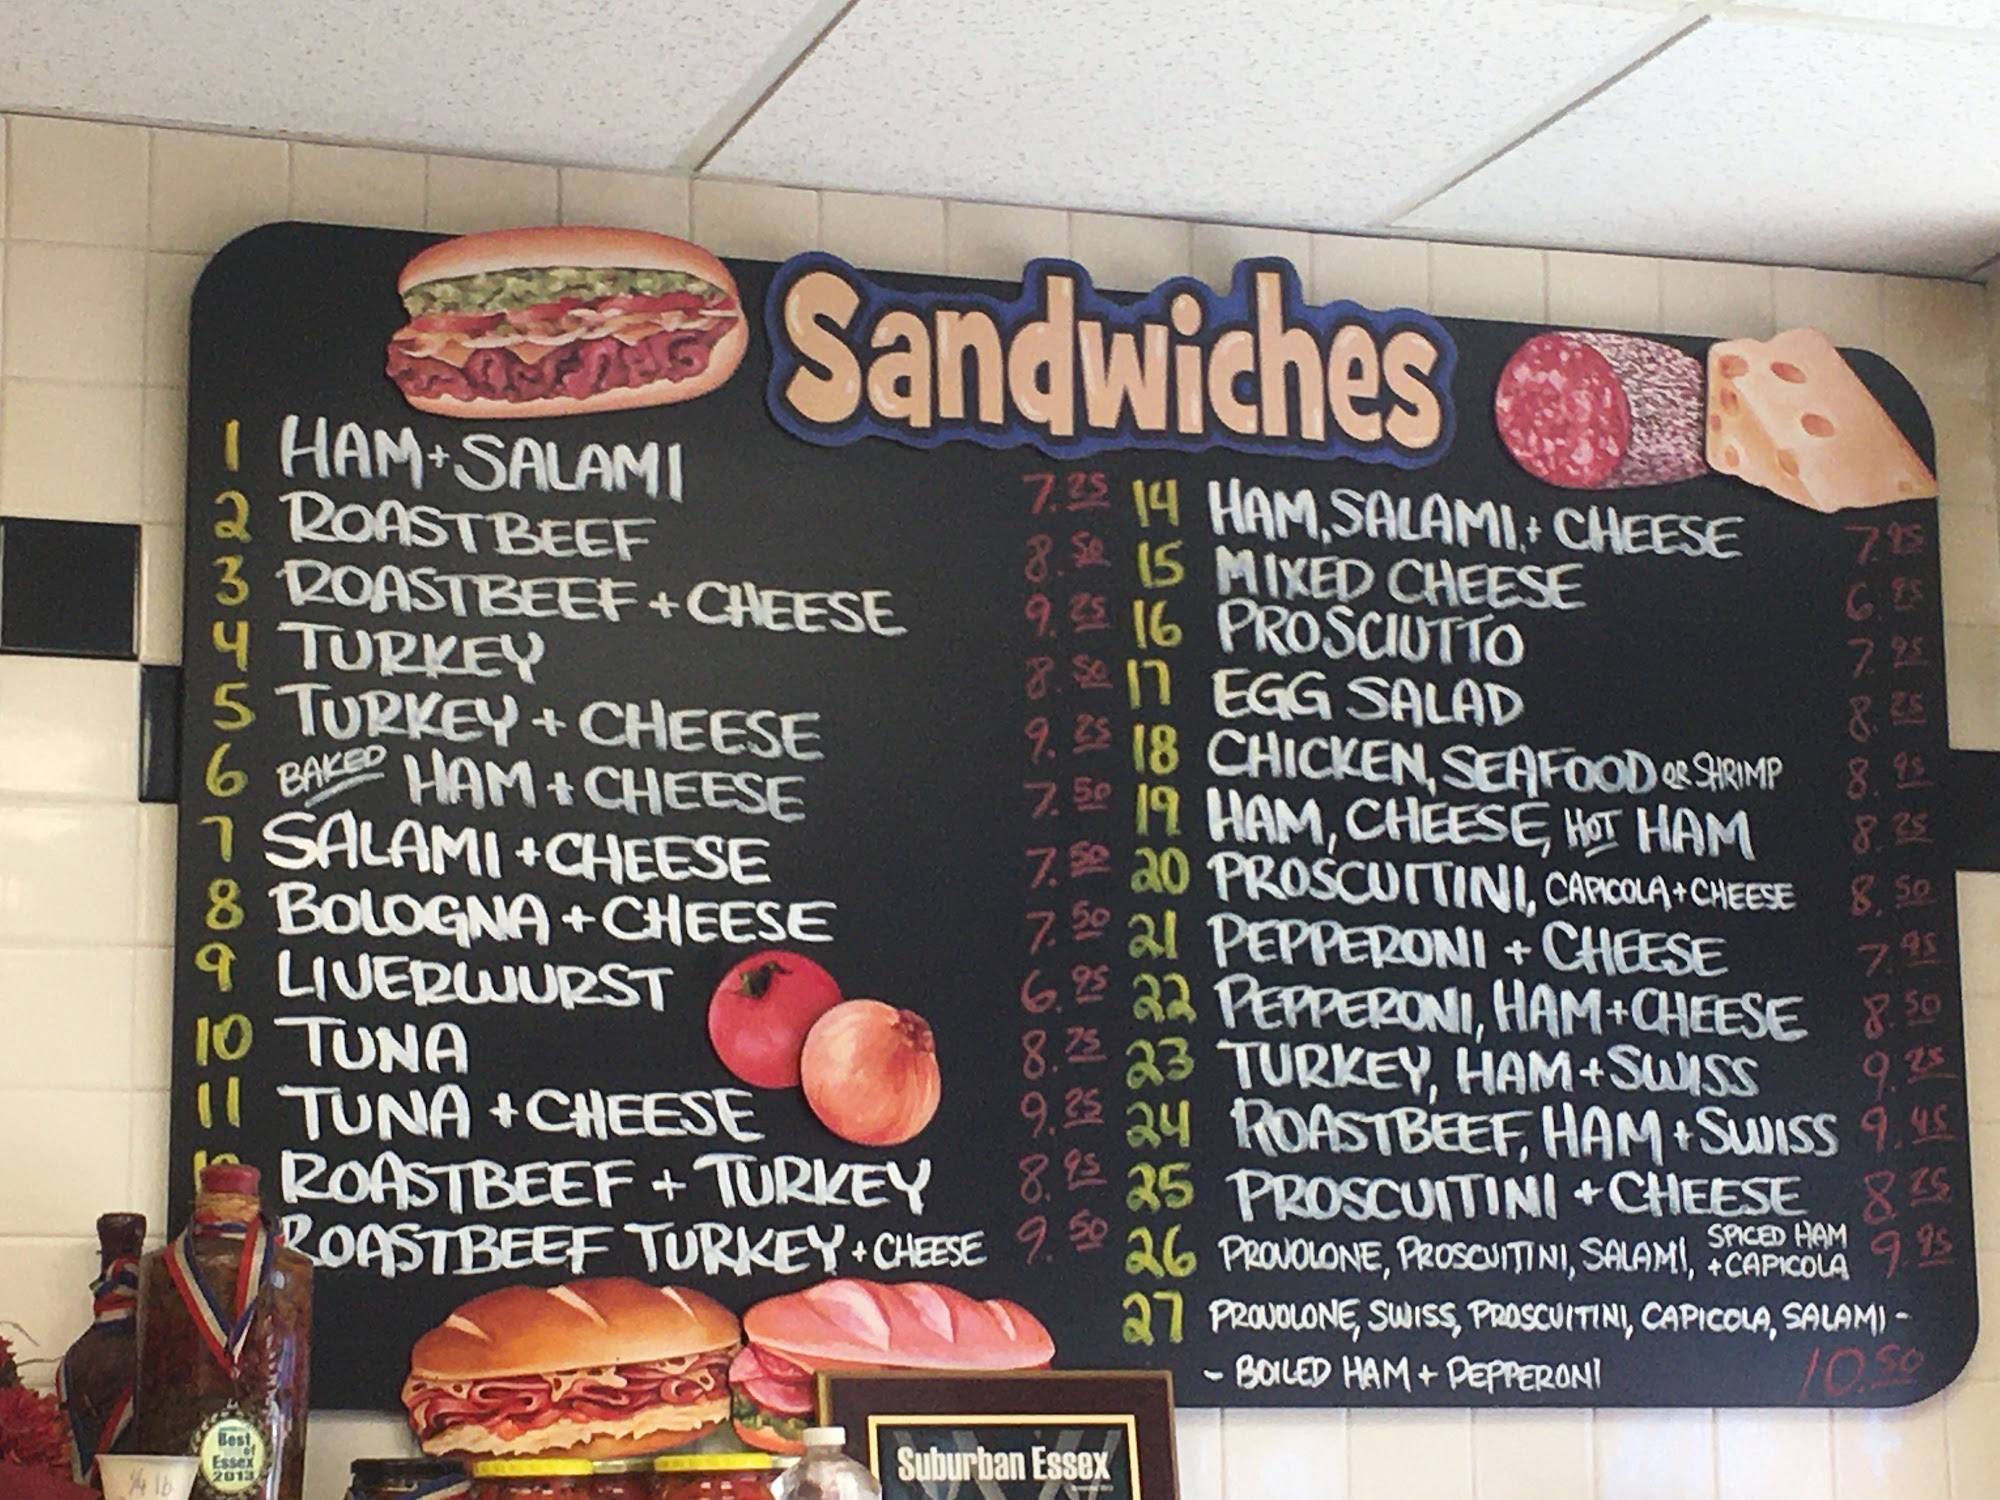 Sandwiches
1 HAM + SALAMI 7.25
2 ROASTBEEF 8.50
3 ROASTBEEF + CHEESE 9.25
4 TURKEY 8.50
5 TURKEY + CHEESE 9.25
6 BAKED HAM + CHEESE 7.50
7 SALAMI + CHEESE 7.50
8 BOLOGNA + CHEESE 7.50
9 LIVERWURST 6.95
10 TUNA 8.75
11 TUNA + CHEESE 9.25
ROASTBEEF + TURKEY 8.95
ROASTBEEF TURKEY + CHEESE 9.50
14 HAM, SALAMI, + CHEESE 7.95
15 MIXED CHEESE 6.95
16 PROSCIUTTO 7.95
17 EGG SALAD 8.25
18 CHICKEN, SEAFOOD OR SHRIMP 8.95
19 HAM, CHEESE, HOT HAM 8.25
20 PROSCUITTINI, CAPICOLA + CHEESE 8.50
21 PEPPERONI + CHEESE 7.95
22 PEPPERONI, HAM + CHEESE 8.50
23 TURKEY, HAM + SWISS 9.25
24 ROASTBEEF, HAM + SWISS 9.45
25 PROSCUITINI + CHEESE 8.25
26 PROVOLONE, PROSCUITINI, SALAMI, SPICED HAM + CAPICOLA 9.95
27 PROVOLONE, SWISS, PROSCUITINI, CAPICOLA, SALAMI -
- BOILED HAM + PEPPERONI 10.50
Best of Essex 2013
1/4 lb
Suburban Essex